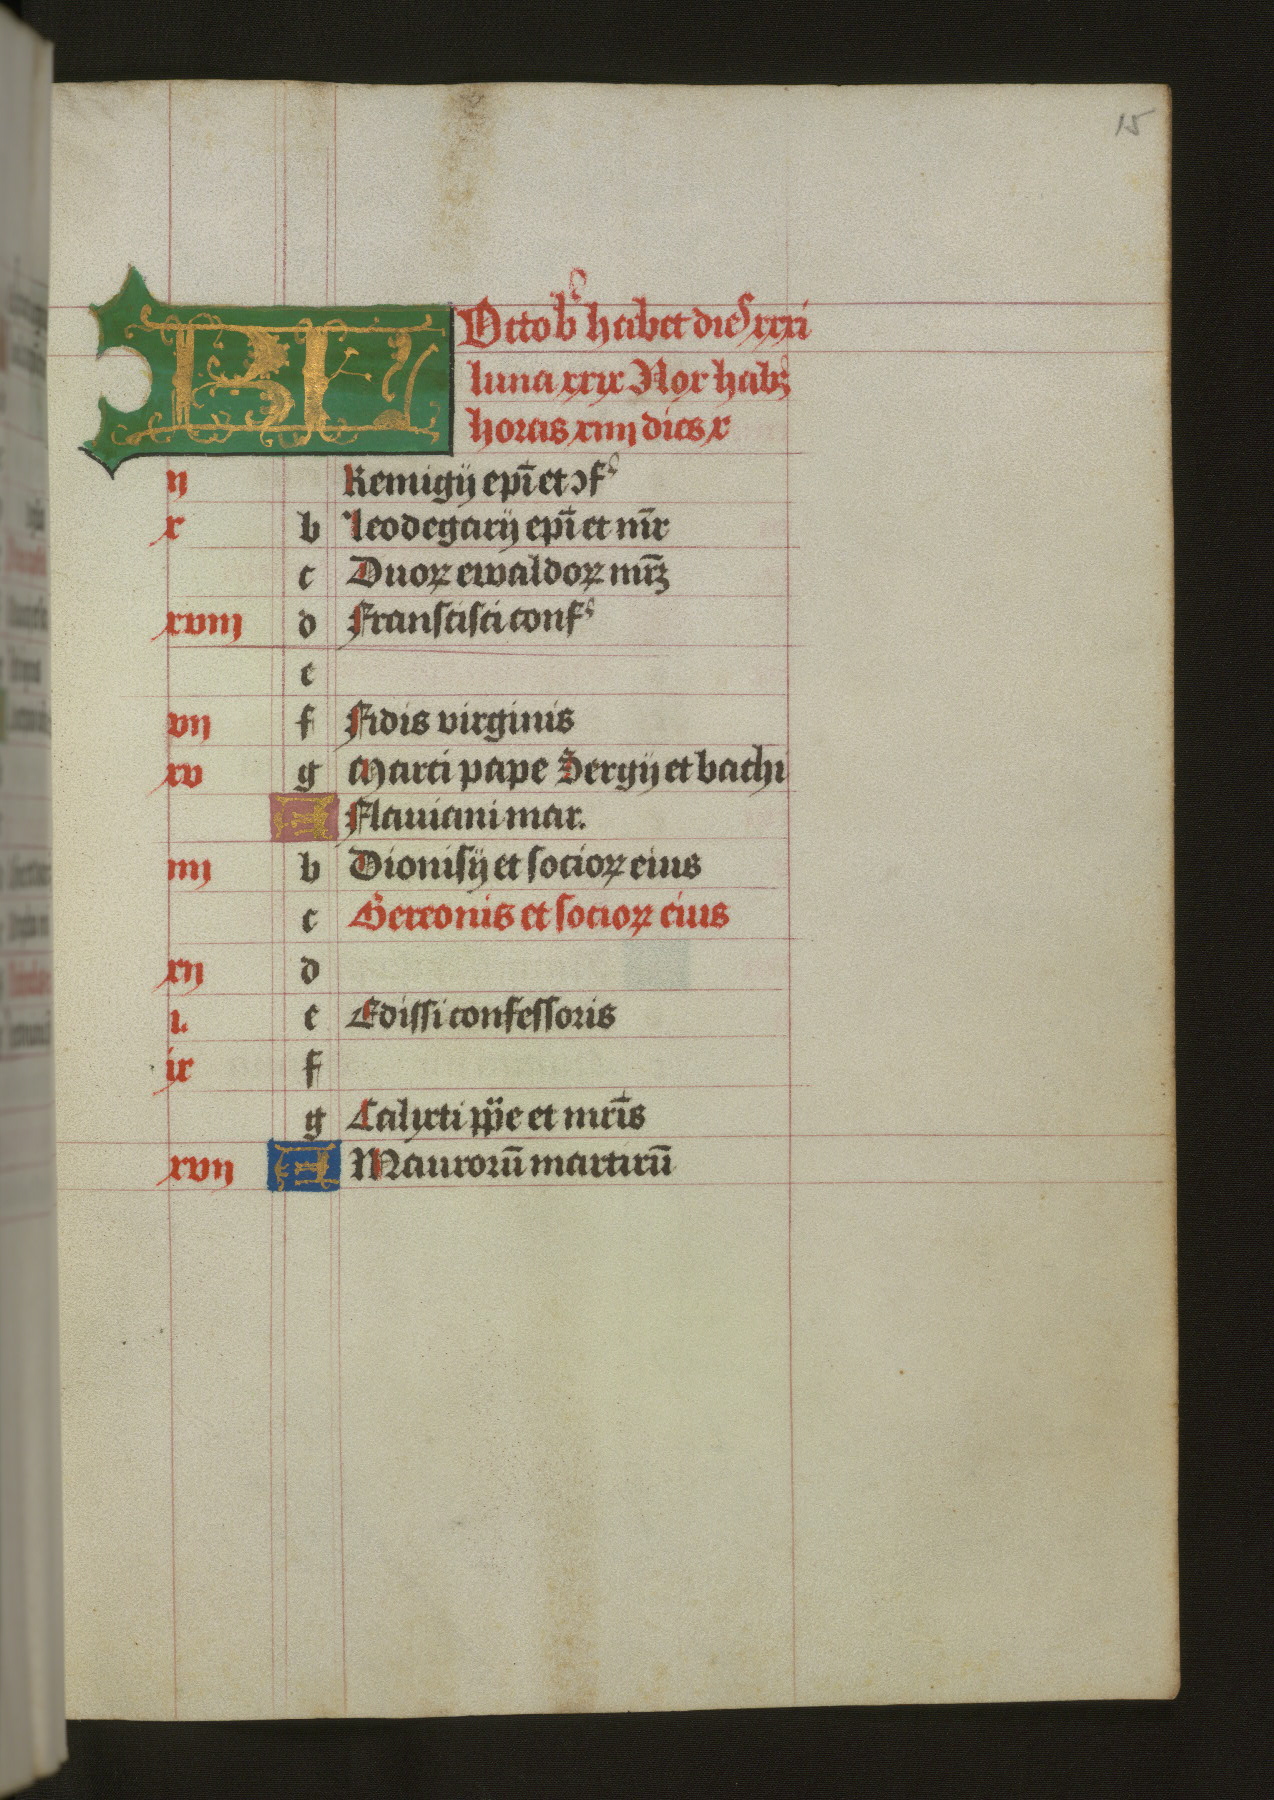 15
KL Octobʳ habet dies xxxi
luna xxix Nox habꝫ
horas xiiij dies x
ij Remigij ep̄i et ɔfˢ
x b leodegarij ep̄i et mr̄
c Duoꝝ ewaldoꝝ mr̄ꝫ
xviij d Franscisci confˢ
e
vij f Fidis virginis
xv g Marci pape Sergij et bachi
A Flauiani mar.
iiij b Dionisij et socioꝝ eius
c Gereonis et socioꝝ eius
xij d
i. e Edissi confessoris
ix f
g Calixti pp̄e et mr̄is
xvij A Maurorū martirū